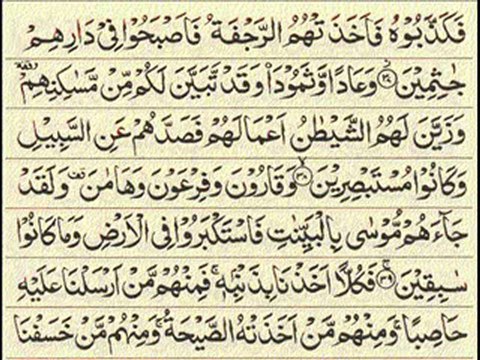 فَكَذَّبُوْهُ فَاَخَذَتْهُمُ الرَّجْفَةُ فَاَصْبَحُوْا فِیْ دَارِهِمْ
جٰثِمِیْنَ ﴿۳۷﴾ وَعَادًا وَّثَمُوْدَا۟ وَقَدْ تَّبَیَّنَ لَكُمْ مِّنْ مَّسٰكِنِهِمْ
وَزَیَّنَ لَهُمُ الشَّیْطٰنُ اَعْمَالَهُمْ فَصَدَّهُمْ عَنِ السَّبِیْلِ
وَكَانُوْا مُسْتَبْصِرِیْنَ ﴿۳۸﴾ وَقَارُوْنَ وَفِرْعَوْنَ وَهَامٰنَ وَلَقَدْ
جَآءَهُمْ مُّوْسٰی بِالْبَیِّنٰتِ فَاسْتَكْبَرُوْا فِی الْاَرْضِ وَمَا كَانُوْا
سٰبِقِیْنَ ﴿۳۹﴾ فَكُلًّا اَخَذْنَا بِذَنْۢبِهٖ فَمِنْهُمْ مَّنْ اَرْسَلْنَا عَلَیْهِ
حَاصِبًا وَمِنْهُمْ مَّنْ اَخَذَتْهُ الصَّیْحَةُ وَمِنْهُمْ مَّنْ خَسَفْنَا